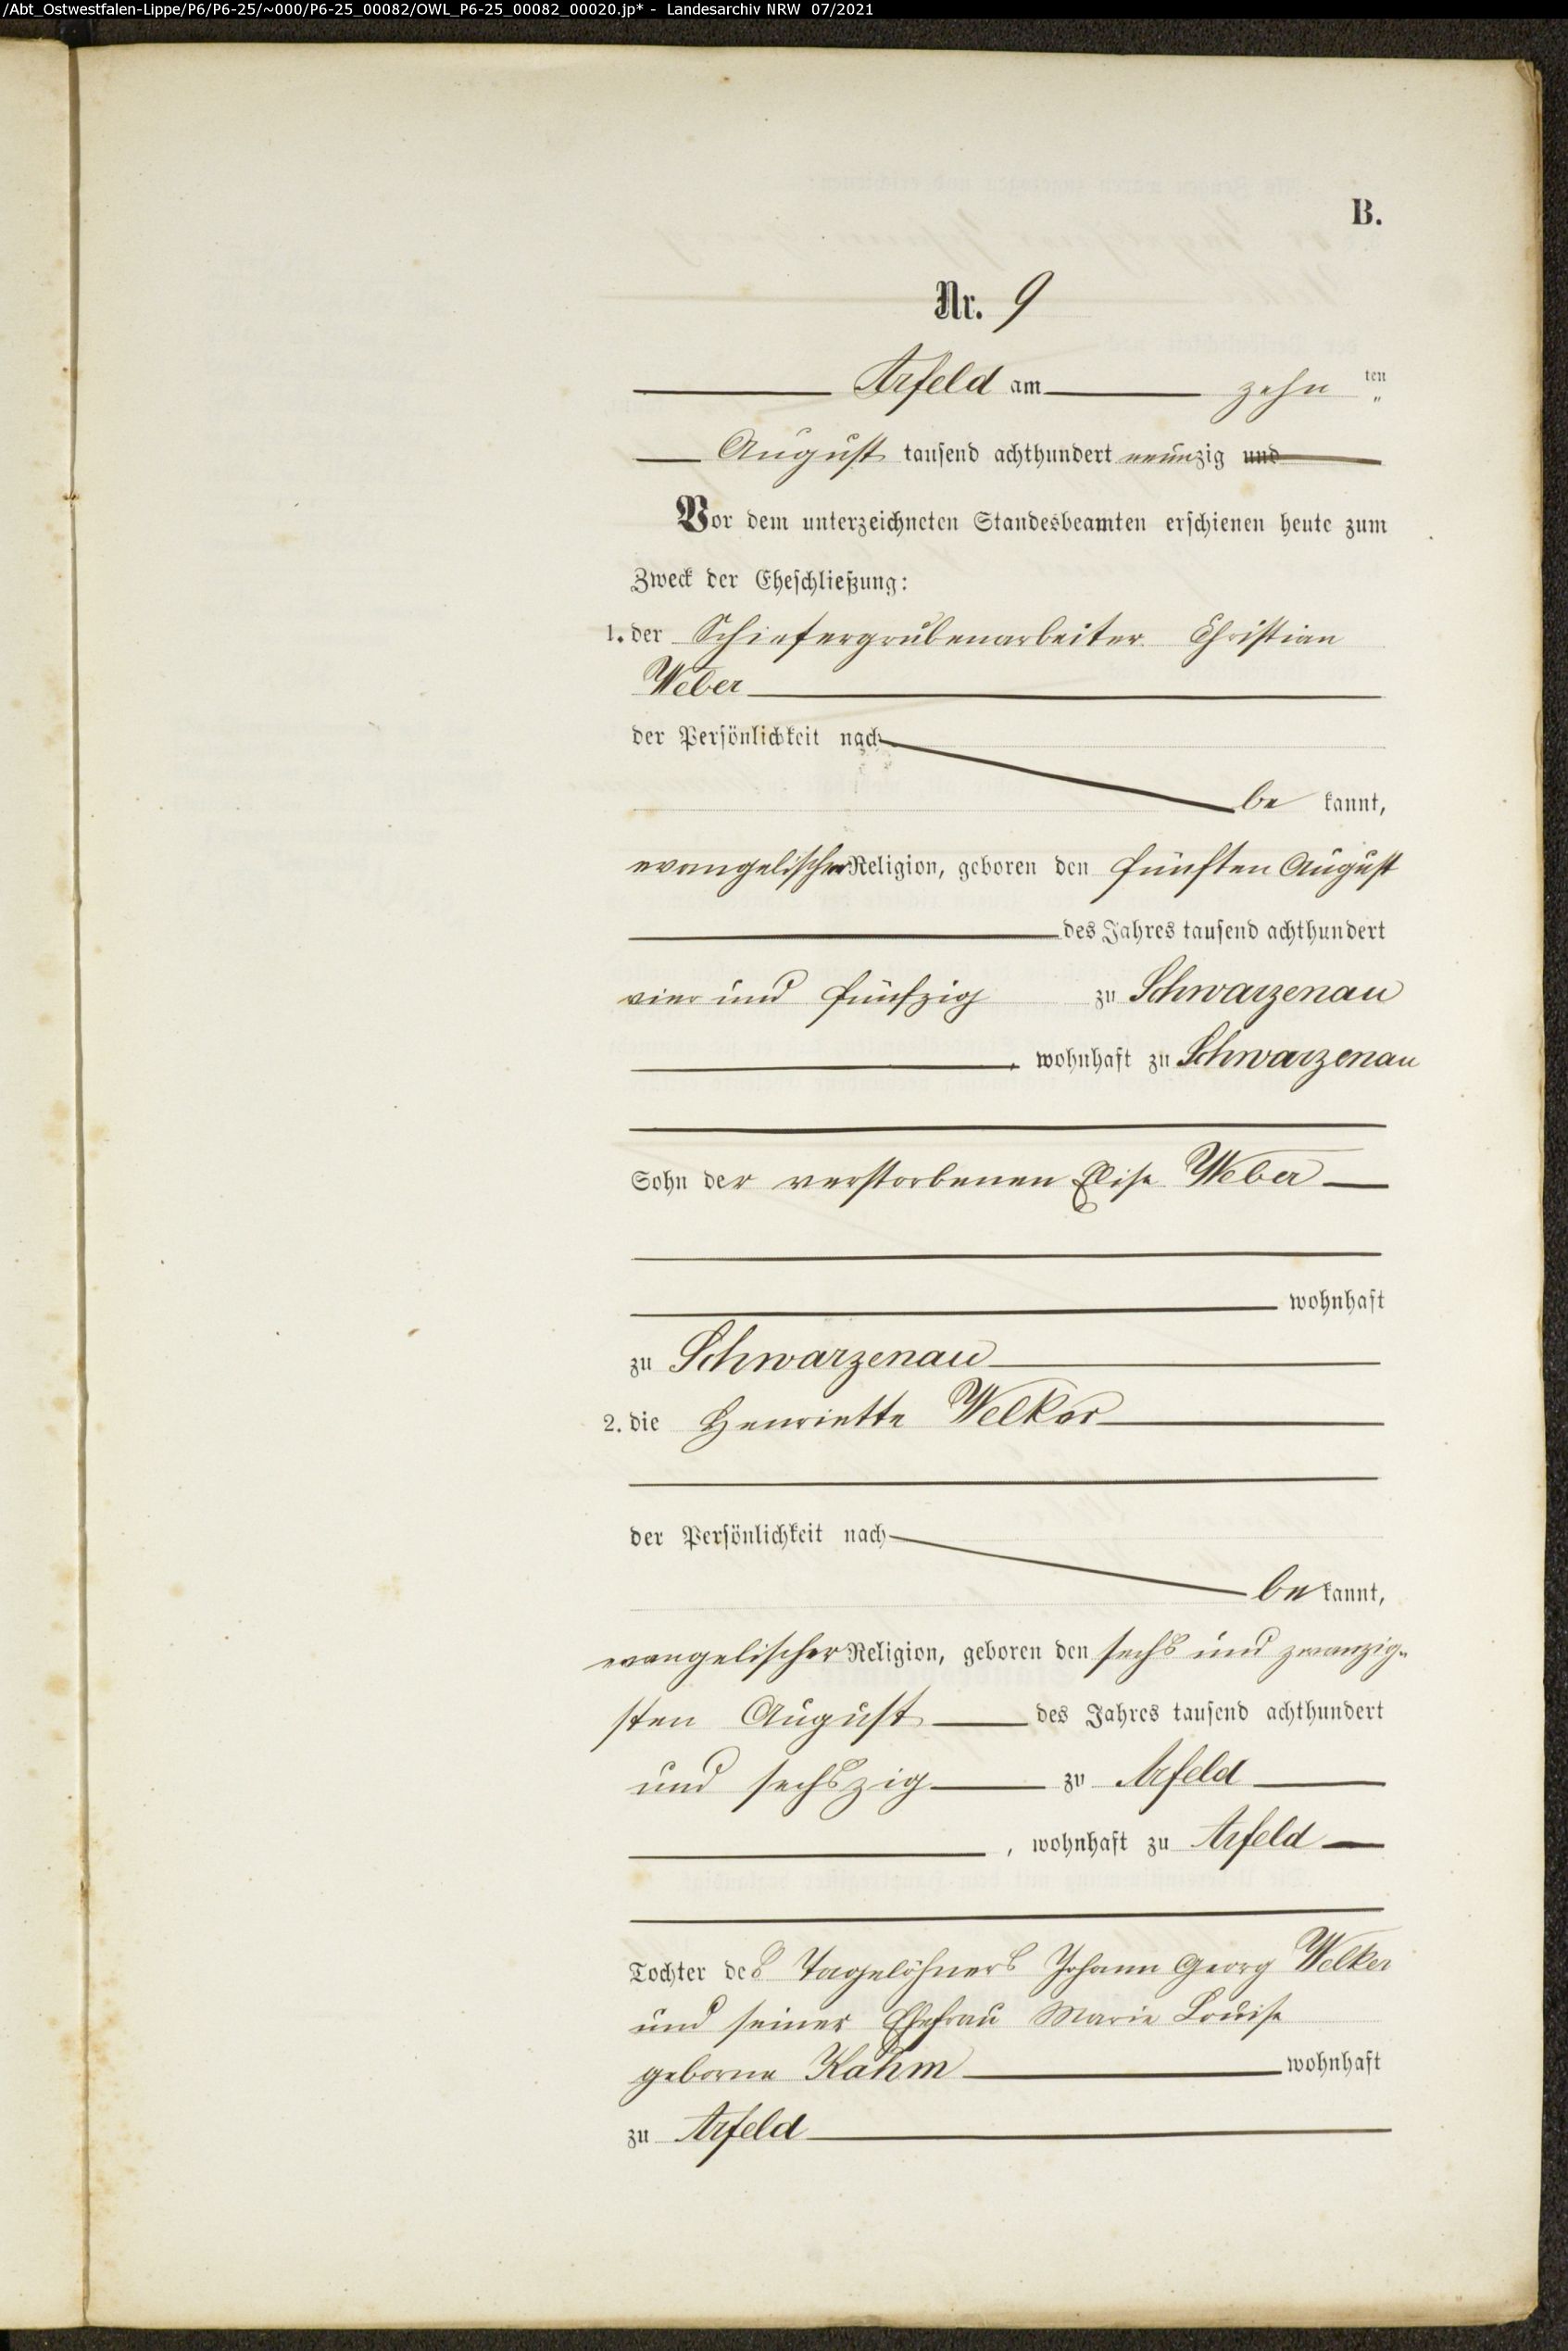 /Abt_Ostwestfalen-Lippe/P6/P6-25/~000/P6-25_00082/OWL_P6-25_00082_00020.jp* - Landesarchiv NRW 07/2021
B.
Nr. 9
Arfeld am zehn ten
August tausend achthundert neunzig und
Vor dem unterzeichneten Standesbeamten erschienen heute zum
Zweck der Eheschließung:
1. der Schiefergrubenarbeiter Christian
Weber
der Persönlichkeit nach
be kannt,
evangelischer Religion, geboren den fünften August
des Jahres tausend achthundert
vier und fünfzig zu Schwarzenau
, wohnhaft zu Schwarzenau
Sohn der verstorbenen Elise Weber
wohnhaft
zu Schwarzenau
2. die Henriette Welker
der Persönlichkeit nach
be kannt,
evangelischer Religion, geboren den sechs und zwanzig-
sten August des Jahres tausend achthundert
und sechszig zu Arfeld
, wohnhaft zu Arfeld
Tochter des Tagelöhners Johann Georg Welker
und seiner Ehefrau Marie Louise
geborne Kahm wohnhaft
zu Arfeld